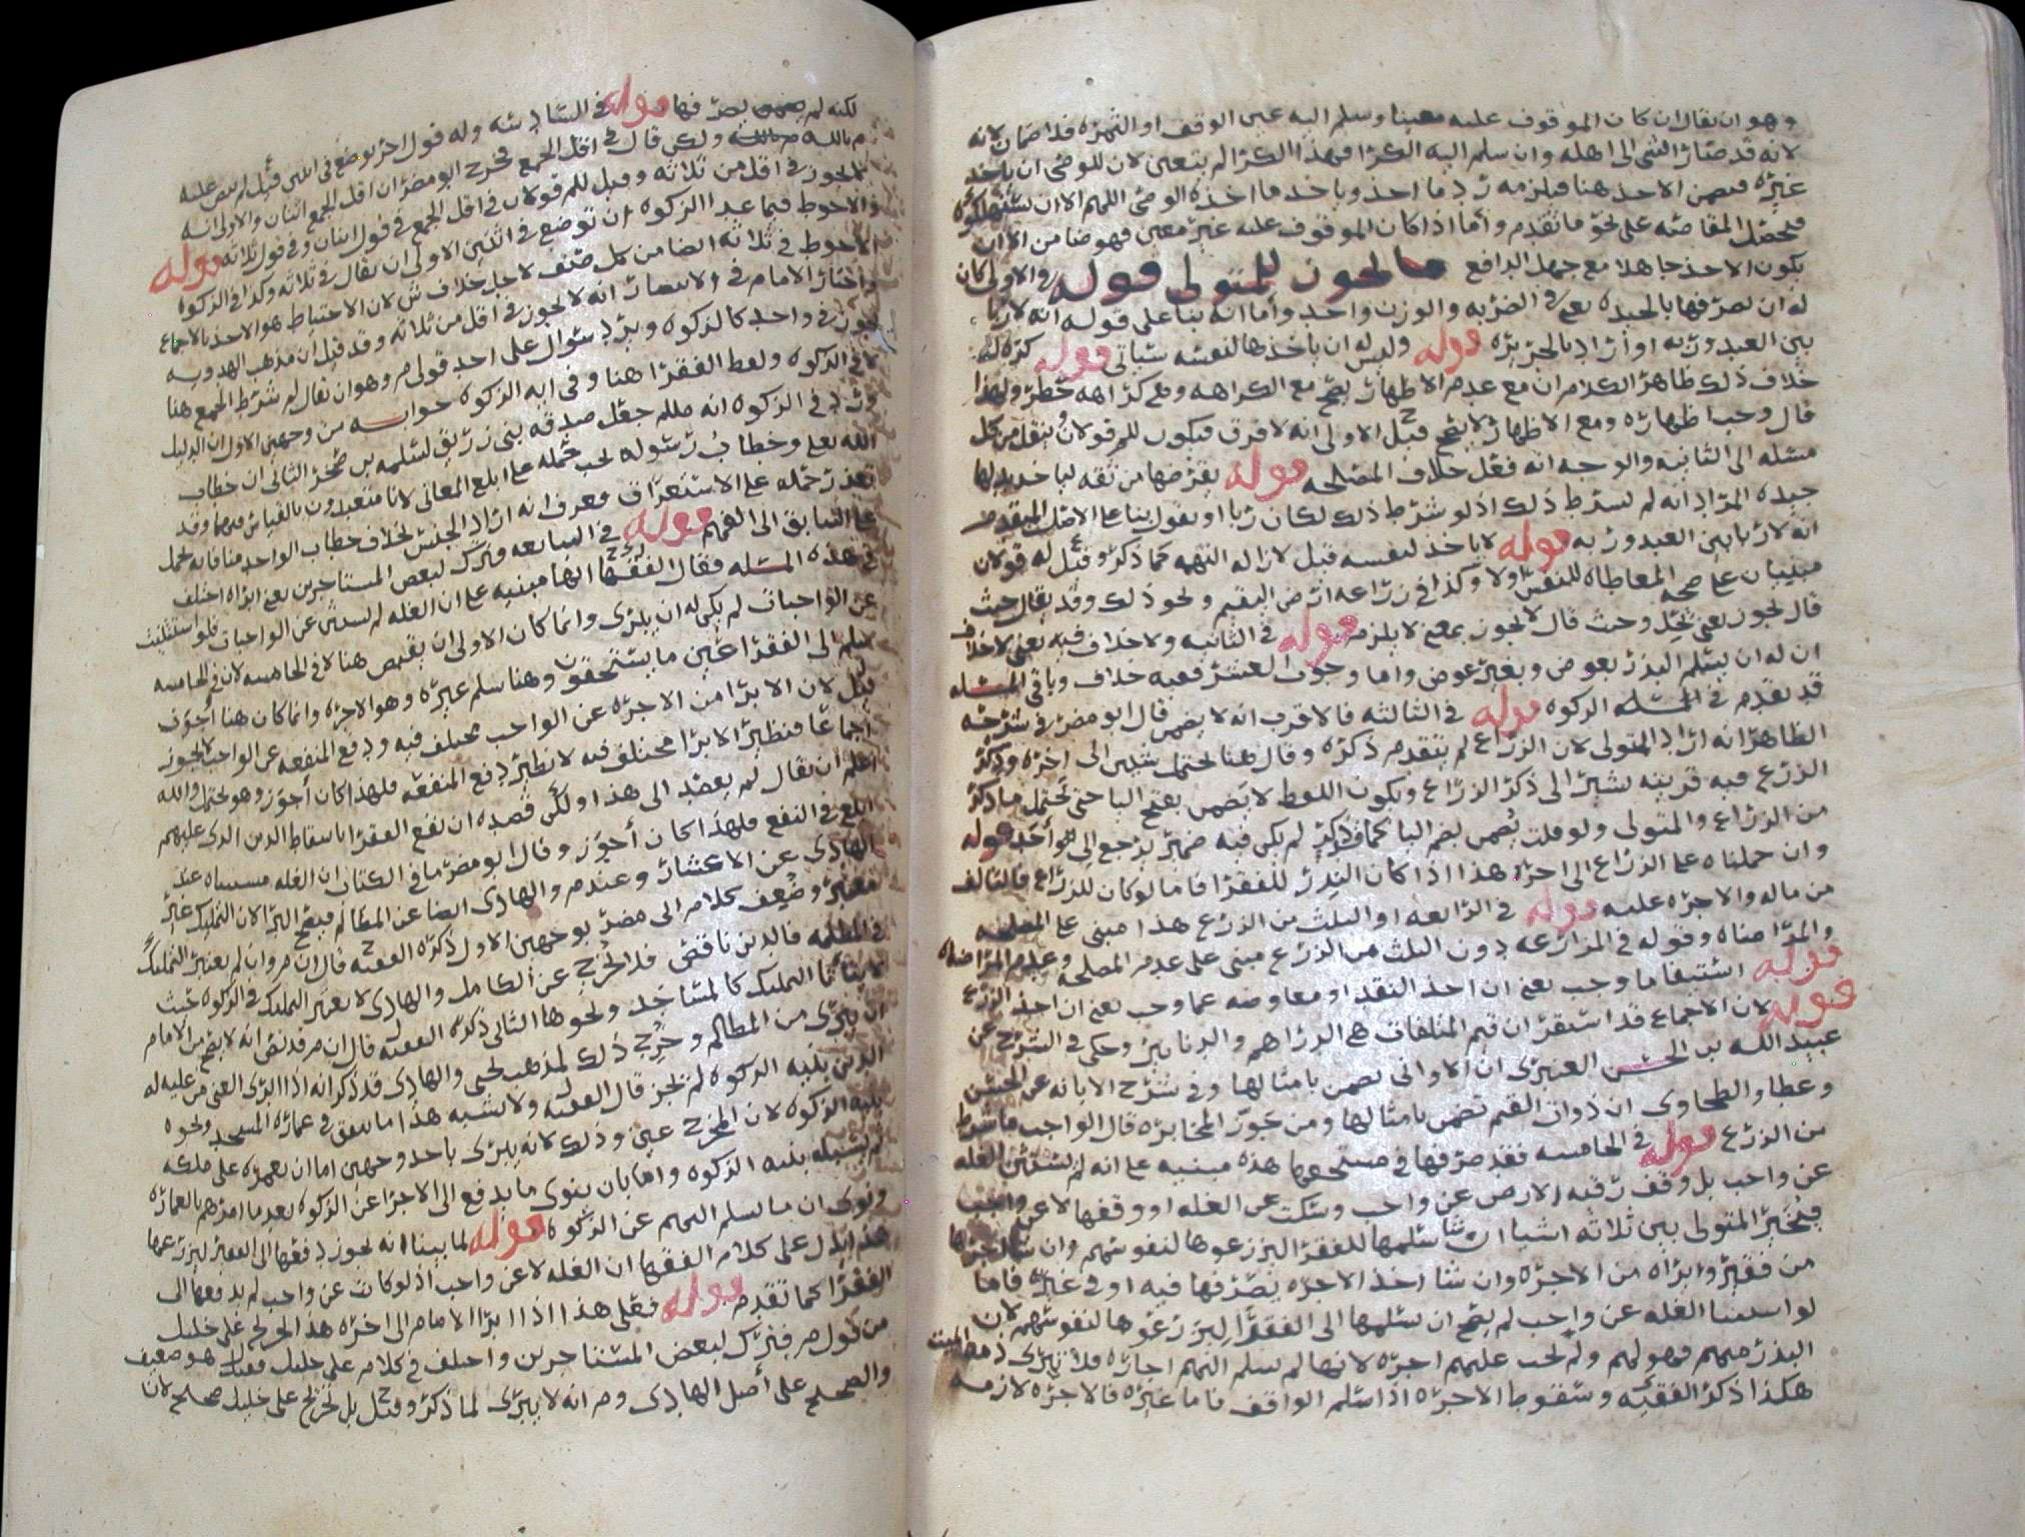 وهو ان يقال ان كان الموقوف عليه معينا وسلم اليه عين الوقف او الثمره فلا ضمان لانه
لانه قد صار الشى الى اهله وان سلم اليه الكرا فهذا الكرا لم يتعين لان للوصى ان ياخذ
غيره فيضمن الاخذ هنا فيلزمه رد ما اخذ وياخذ ما اخذه الوصى اللهم الا ان
فيحصل المقاصه على نحو ما تقدم واما اذا كان الموقوف عليه غير معين فهو ضامن الا ان
يكون الاخذ جاهلا مع جهل الدافع ما يجوز للمتولى قوله والاولى كان
له ان يصرفها بالجيده يعنى فى الضربه والوزن واحد واما انه بنا على قوله انه لا ربا
بين العبد وربه او اراد بالجزيره قوله وليس له ان ياخذها لنفسه سياتى قوله كره له
خلاف ذلك ظاهر الكلام ان مع عدم الاظهار يصح مع الكراهه وهى كراهه حظر ولهذا
قال وجب اظهاره ومع الاظهار لا يصح قيل الاولى انه لا فرق فيكون للم قولان ينقل من كل
مسئله الى الثانيه والوجه انه فعل خلاف المصلحه قوله يقرضها من ثقه لياخذ بدلها
جيده المراد انه لم يشرط ذلك اذ لو شرط ذلك لكان ربا او يقول بنا على الاصل
انه لا ربا بين العبد وربه قوله لا ياخذ لنفسه قيل لازاله التهمه كما ذكر وقيل له قولان
مبنيان على صحه المعاطاه للنفس ولا وكذا فى زراعه ارض اليتيم ونحو ذلك وقد يقال حيث
قال يجوز يعنى يحل وحيث قال لا يجوز بمعنى لا يلزم قوله فى الثانيه ولا خلاف فيه يعنى لا خلاف
ان له ان يسلم البذر بعوض وبغير عوض واما وجوب العشر ففيه خلاف وباقى المسئله
قد تقدم فى الزكوه قوله فى الثالثه فالاقرب انه لا يضمن قال ابو مضر فى شرحه
الظاهر انه اراد المتولى لان الزراع لم يتقدم ذكره وقال هنا يحتمل شيين الى اخره وذكر
الزرع فيه قرينه تشير الى ذكر الزراع ويكون اللفظ لا يضمن بفتح اليا حتى يحتمل ما ذكر
من الزراع والمتولى ولو قلت يضمن بضم اليا كما ذكر لم يكن فيه ضمير يرجع الى قوله
وان حملناه على الزراع الى اخره هذا اذا كان البذر للفقرا فاما لو كان للزراع فالتالف
من ماله والاجره عليه قوله فى الرابعه او الثلث من الزرع هذا مبنى على المصلحه
والمراضاه وقوله فى المزارعه دون الثلث من الزرع مبنى على عدم المصلحه وعدم المراضاه
قوله استيفا ما وجب يعنى ان اخذ النقد او معاوضه عما وجب يعنى ان اخذ الزرع
قوله لان الاجماع قد استقر ان قيم المتلفات هى الدراهم والدنانير وحكى فى الشرح عن
عبيد الله بن الحسن العنبرى ان الاوانى تضمن بامثالها وفى شرح الابانه عن الحسن
وعطا والطحاوى ان ذوات القيم تضمن بامثالها ومن يجوز المخابره قال الواجب ما شرط
من الزرع قوله فى الخامسه فقد صرفها فى مستحقها هذه مبنيه على انه لم يستثن الغله
عن واجب بل وقف رقبه الارض عن واجب وسكت عن الغله او وقفها لا عن واجب
فيخير المتولى بين ثلاثه اشيا ان شا سلمها للفقرا ليزرعوها لنفوسهم وان شا اجرها
من فقير وابراه من الاجره وان شا اخذ الاجره يصرفها فيه او فى غيره فاما
لو استثنا الغله عن واجب لم يصح ان يسلمها الى الفقرا ليزرعوها لنفوسهم لان
البذر منهم فهو لهم ولم يجب عليهم اجره لانها لم تسلم اليهم اجاره فلا تبرى ذمه الميت
هكذا ذكر الفقيه وسقوط الاجره اذا سلم الواقف فاما غيره فالاجره لازمه
لكنه لم يصرفها قوله فى السادسه وله قول اخر توضع فى اثنين قيل لم ينص عليه
م بالله ولكن قال فى اقل الجمع فخرج ابو مضر ان اقل الجمع اثنان والاولى انه
لا يجوز فى اقل من ثلاثه وقيل للم قولان فى اقل الجمع فى قول اثنان وفى قول ثلاثه قوله
والاحوط فيما عدا الزكوه ان توضع فى اثنين الاولى ان يقال فى ثلاثه وكذا فى الزكوه
الاحوط فى ثلاثه ايضا من كل صنف لاجل خلاف ش لان الاحتياط هو الاخذ بالاجماع
واختار الامام فى الانتصار انه لا يجوز فى اقل من ثلاثه وقد قيل ان مذهب الهدويه
يجوز فى واحد كالزكوه ويرد سوال على احد قولى م وهو ان يقال لم شرط الجمع هنا
لا فى الزكوه ولفظ الفقرا هنا وفى ايه الزكوه جوابه من وجهين الاول ان الدليل
ورد فى الزكوه انه صللم جعل صدقه بنى زريق لسلمه بن صخر الثانى ان خطاب
الله تعلى وخطاب رسوله يجب حمله على ابلغ المعانى لانا متعبدون بالقياس
تعذر حمله على الاستغراق فعرف انه اراد الجنس بخلاف خطاب الواحد منا فانه يحمل
على السابق الى الفهم قوله فى السابعه وترك لبعض المستاجرين يعنى ابراه اختلف
فى هذه المسئله فقال الفقها انها مبنيه على ان الغله لم تستثن عن الواجبات فلو استثنيت
عن الواجبات لم يكن له ان يبرى وانما كان الاولى ان يقبض هنا لا فى الخامسه لان فى الخامسه
سلم الى الفقرا عين ما يستحقون وهنا سلم غيره وهو الاجره وانما كان هنا اجوز
قيل لان الابرا من الاجره عن الواجب مختلف فيه ودفع المنفعه عن الواجب لا يجوز
اجماعا فنظير الابرا مختلف فيه لا نظير دفع المنفعه فلهذا كان اجوز وهو محتمل والله
اعلم ان يقال لم يقصد الى هذا ولكن قصده ان نفع الفقرا باسقاط الدين الذى عليهم
ابلغ فى النفع فلهذا كان اجوز وقال ابو مضر ما فى الكتاب ان الغله مستثناه عند
الهادى عن الاعشار وعند م والهادى ايضا عن المظالم فيصح البرا لان التمليك غير
معتبر وضعف كلام ابى مضر بوجهين الاول ذكره الفقيه قال ان م وان لم يعتبر التمليك
فى المظالم فالدين ناقص فلا يخرج عن الكامل والهادى لا يعتبر التمليك فى الزكوه حيث
لا يتاتا التمليك كالمساجد ونحوها الثانى ذكره الفقيه قال ان م قد نص انه لا يصح من الامام
ان يبرى من المظالم وخرج ذلك لمذهب يحيى والهادى قد ذكر انه اذا ابرى الغنى من عليه له
الدين بنيه الزكوه لم يجز قال الفقيه ولا يشبه هذا ما ينفق فى عماره المسجد ونحوه
بنيه الزكوه لان المخرج عين وذلك لانه يبرى باحد وجهين اما ان يعمره على ملكه
ثم يسبله بنيه الزكوه واما بان ينوى ما يدفع الى الاجرا عن الزكوه بعد ما امرهم بالعماره
ونوى ان ما يسلم اليهم عن الزكوه قوله لما بينا انه يجوز دفعها الى الفقير ليزرعها
هذا يدل على كلام الفقها ان الغله لا عن واجب اذ لو كانت عن واجب لم يدفعها الى
الفقرا كما تقدم قوله فعلى هذا اذا ابرا الامام الى اخره هذا التخريج على خليل
من قول م فيترك لبعض المستاجرين واختلف فى كلام على خليل فقيل هو ضعيف
والصحيح على اصل الهادى وم انه لا يبرى لما ذكر وقيل بل تخريج على خليل صحيح لانا